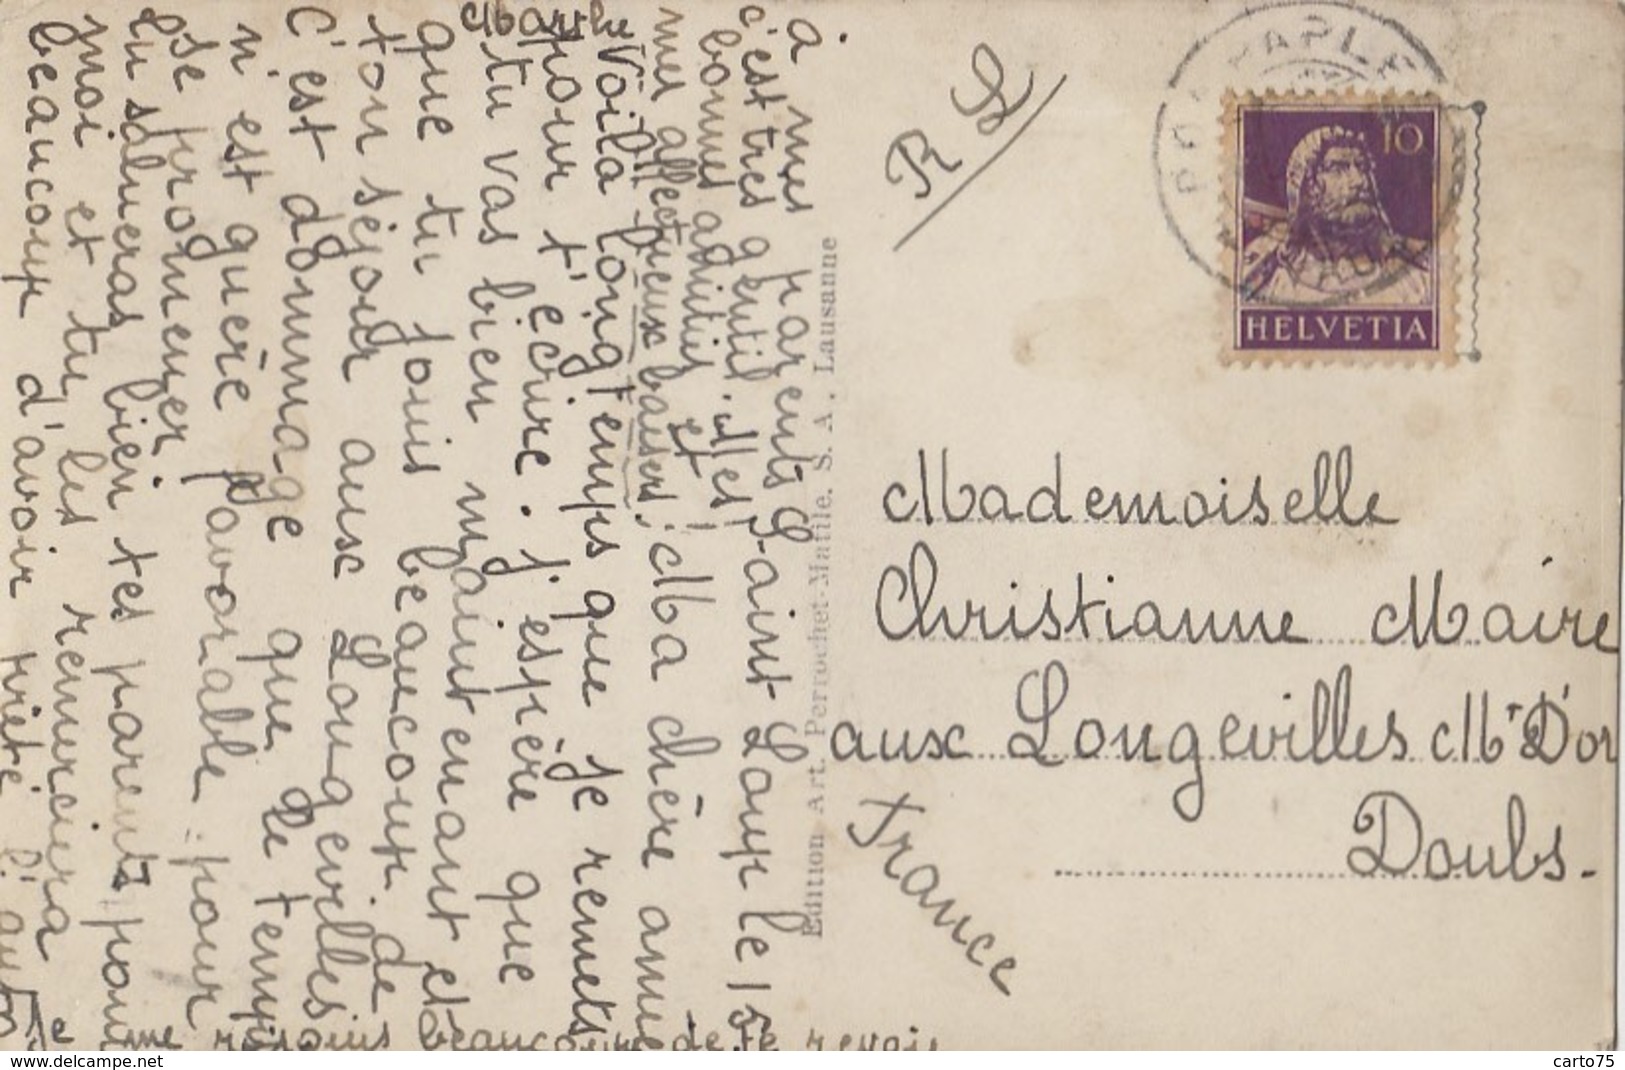 Saint Loup le 15
Ma chère amie
Voilà longtemps que je remets
pour t'écrire. j'espère que
tu vas bien maintenant et
que tu jouis beaucoup de
ton séjour aux Longevilles
C'est dommage que le temps
n'est guère favorable pour
se promener
tu salueras bien tes parents pour
moi et tu les remerciera
beaucoup d'avoir prêté l'auto
à mes parents
c'est très gentil. Mes
bonnes amitiés et
mes affectueux baisers
Marthe
Je me réjouis beaucoup de te revoir
Edition Art. Perrochet-Matile, S. A., Lausanne
10
HELVETIA
Mademoiselle
Christianne Maire
aux Longevilles Mt D'or
Doubs.
France
Je me souviens de ce site : delcampe.net
carto75